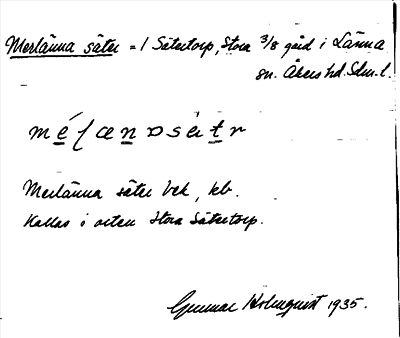 Merlänna säter = 1 Sätertorp, Stora 3/8 gård i Länna
sn. Åkers hd. Sdm. l.
Merlänna säter bek, kb.
Kallas i orten Stora Sätertorp.
Gunnar Holmquist 1935.